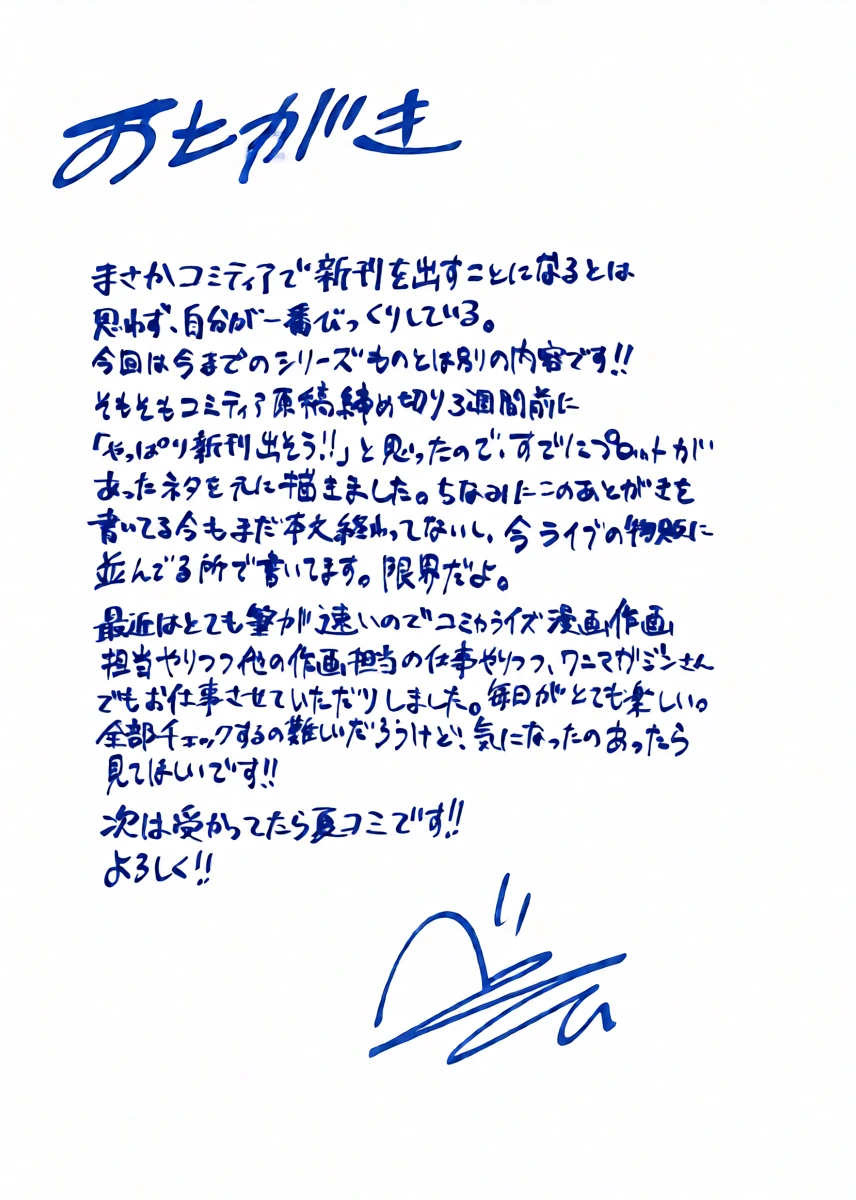 あとがき
まさかコミティアで新刊を出すことになるとは
思わず、自分が一番びっくりしている。
今回は今までのシリーズものとは別の内容です!!
そもそもコミティア原稿締め切り3週間前に
「やっぱり新刊出そう!!」と思ったので、すでにプロットが
あったネタを元に描きました。ちなみにこのあとがきを
書いてる今もまだ本文終わってないし、今ライブの物販に
並んでる所で書いてます。限界だよ。
最近はとても筆が速いのでコミカライズ漫画作画
担当やりつつ他の作画担当の仕事やりつつ、ワニマガジンさん
でもお仕事させていただりしました。毎日がとても楽しい。
全部チェックするの難しいだろうけど、気になったのあったら
見てほしいです!!
次は受かってたら夏コミです!!
よろしく!!